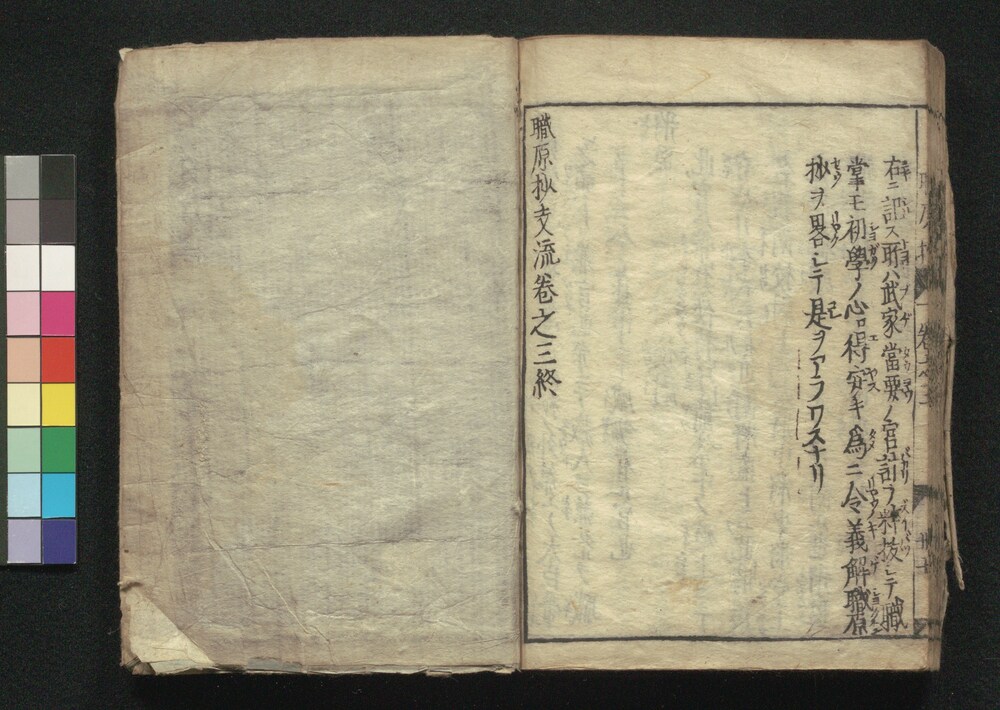 右ニ記ス所ハ武家當要ノ官計ヲ粹拔シテ職
掌モ初學ノ心得安キ爲ニ令義解職原
抄ヲ畧シテ是ヲアラワスナリ
職原抄支流卷之三終